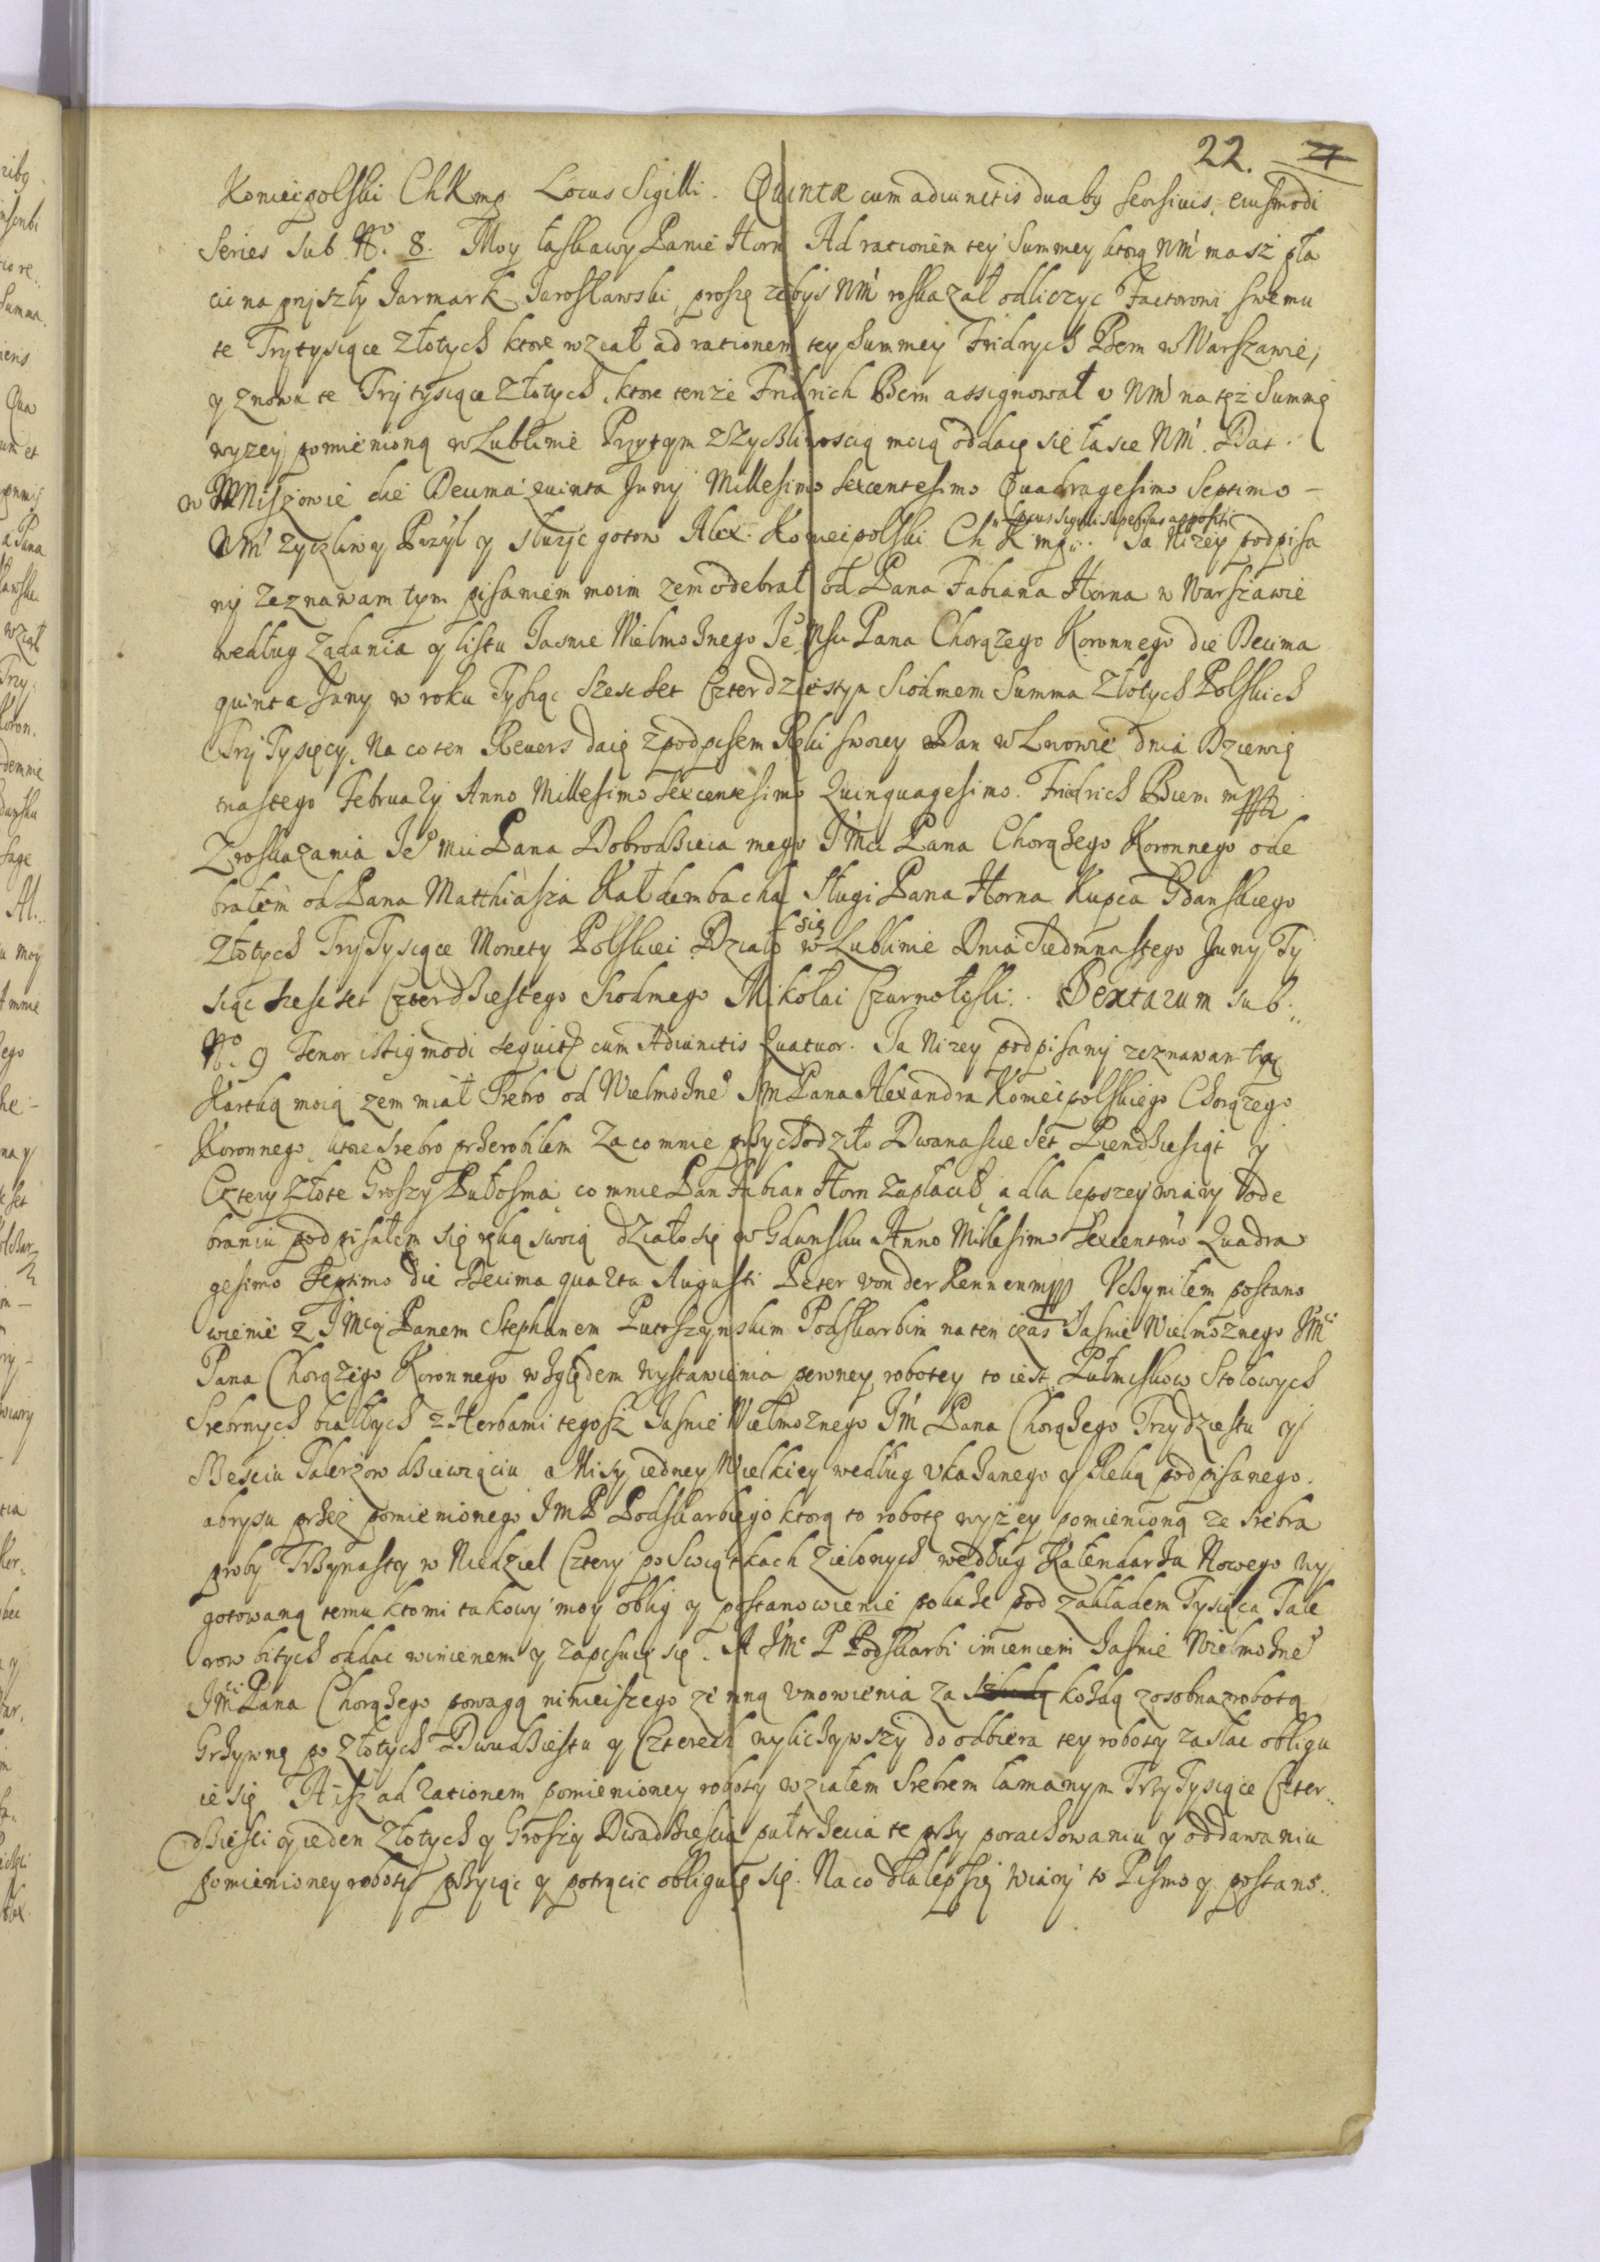 22. 21
Koniecpolski ChKmp Locus Sigilli. Quintæ cum adiunctis duaby seorsiuis, eiusmodi
Series sub No. 8. Moy łaskawy Panie Horn Ad rationem tey Summey ktorą WM masz pła
cic na przyszły Jarmark Jarosławski, proszę zebys WM roskazał odliczyc Factorowi swemu
te Trzy tysiące Złotych ktore wział ad rationem tey Summey Fridrych Bem w Warszawie,
y znowu te Trzy tysiące Złotych, ktore tenze Fridrich Bem assignował v WM na tęż Summę
wyzey pomienioną w Lublinie Przytym z Zyczliwoscią moią oddaię się łasce WM. Dat.
w Mniszowie die Decima quinta Juny Millesimo Sexcentesimo Quadragesimo Septimo –
WM zyczliwy Przyl y słuzyc gotow Alex: Koniecpolski Ch K mp. Locus Sigilli superius appositi Ja Nizey podpisa
ny zeznawam tym pisaniem moim zem odebrał od Pana Fabiana Horna w Warszawie
według Zadania y listu Jasnie Wielmoznego Je Msci Pana Chorązego Koronnego die Decima
quinta Juny w roku Tysiąc Szescset Czterdziestym Siodmem Summa Złotych Polskich
Trzy Tysięcy, Na co ten Revers daię z podpisem Ręki swoiey Dan w Lwowie dnia Dziewię
tnastego February Anno Millesimo Sexcentesimo Quinquagesimo. Fridrich Bem mpp
Z roskazania Jeo mci Pana Dobrodzieia mego JMci Pana Chorążego Koronnego ode
brałem od Pana Matthiasza Kałdembacha Sługi Pana Horna Kupca Gdanskiego
Złotych Trzy Tysiące Monety Polskiei Działo się w Lublinie Dnia Siedmnastego Juny Ty
siąc szescset Czterdziestego Siodmego Mikołai Czarnołęski. Sextarum sub
No. 9 Tenor istiqmodi sequitr cum Adiunctis Quatuor. Ja Nizey podpisany zeznawam tą
Kartką moią zem miał Srebro od Wielmożneo JM Pana Alexandra Koniecpolskiego Chorązego
Koronnego, ktore Srebro przerobiłem Za co mnie przychodziło Dwanascie Set Piendziesiąt y
Cztery Złote Groszy Pułosma, co mnie Pan Fabian Horn Zapłacił, a dla lepszey wiary Vode
braniu podpisałem się ręką swoią działo się w Gdansku Anno Millesimo Sexcentmo Quadra
gesimo Septimo die Decima quarta Augusti Peter von der Rennen mpp Vczyniłem postano
wienie z JMcią Panem Stephanem Putoszynskim Podskarbim na ten czas Jasnie Wielmoznego JMc
Pana Chorązego Koronnego względem wystawienia pewney robotey to iest Pułmiskow Stołowych
Srebrnych białłych z Herbami tegosz Jasnie Wielmoznego JM Pana Chorążego Trzydziestu y
Szesciu Talerzow dziewiąciu Misy iedney Wielkiey według vkazanego y Ręką podpisanego
abrysu przez pomienionego JMP Podskarbiego ktorą to robotę wyzey pomienioną ze srebra
proby Trzynastey w Niedziel Cztery po Swiątkach Zielonych według Kalendarza Nowego wy
gotowaną temu kto mi takowy moy oblig y postanowienie pokaże pod zakładem Tysiąca Tale
row bitych oddac winienem y zapisuię się. A JMc P Podskarbi imieniem Jasnie Wielmożneo
JMci Pana Chorążego powagą ninieiszego ze mną vmowienia za kożdą zosobna zrobotą
Grzywnę po Złotych Dwudziestu y Czterech wyliczywszy do odbiera tey roboty zasłac obligu
ie się A isz ad rationem pomienioney roboty wziałem Srebrem łamanym Trzy Tysiące Czter
dziesci y ieden Złotych y Groszy Dwadziescia pułtrzecia te przy porachowaniu y oddawaniu
pomienioney roboty przyiąc y potrącic obliguię się. Na co dla lepszei wiary to Pismo y postano